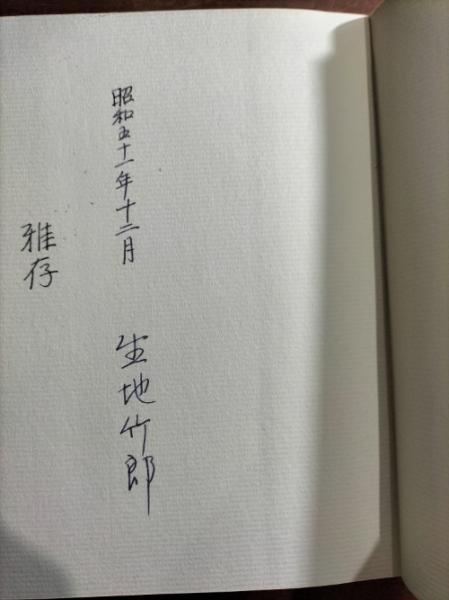 昭和五十一年十二月
生地竹郎
雅存